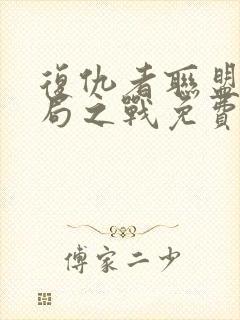 復仇者聯盟
局之戰免費
傅家二少